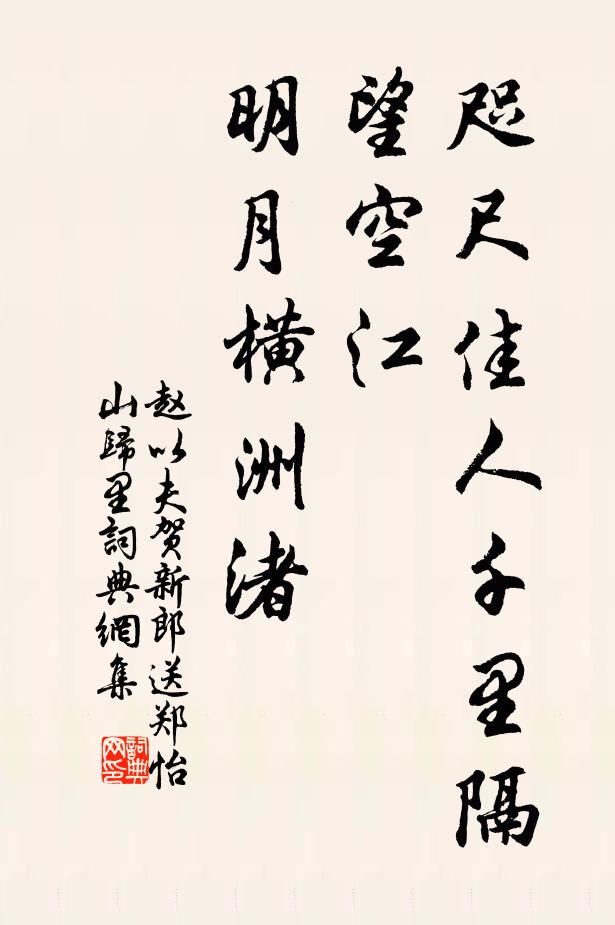 咫尺佳人千里隔
望空江
明月橫洲渚
赵以夫贺新郎送郑怡
山歸里詞典網集
詞典網印